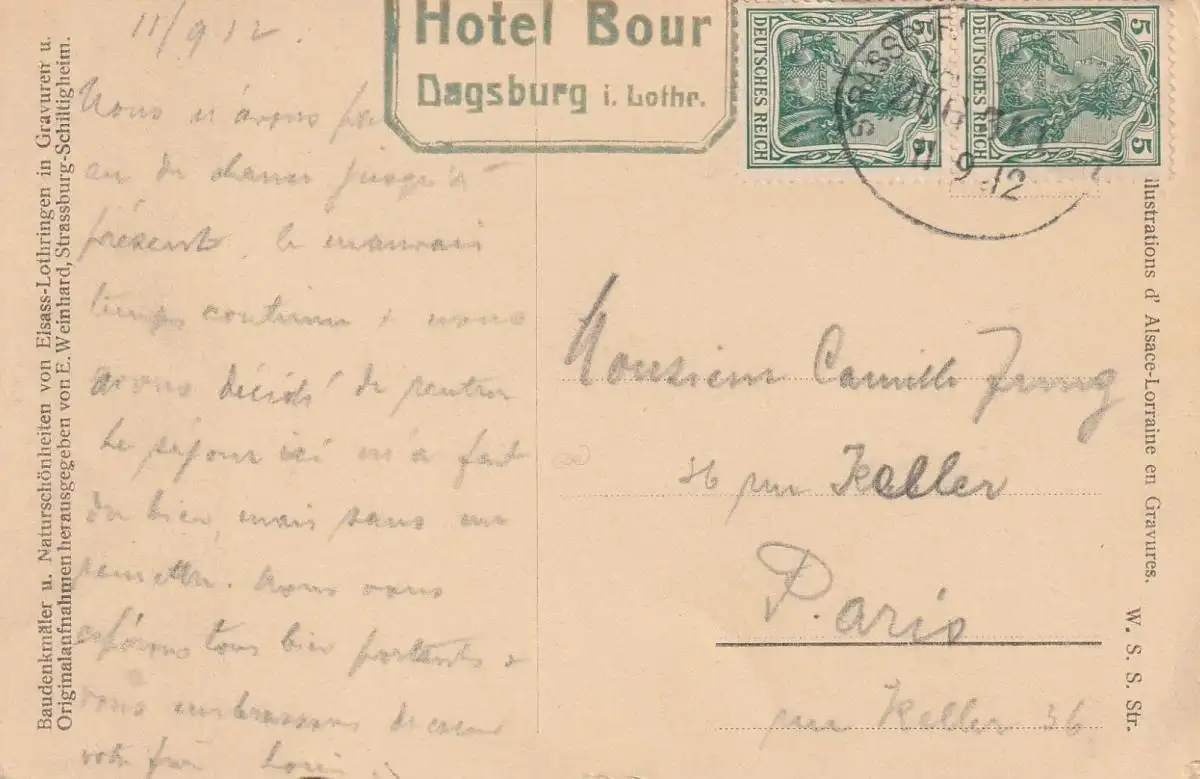 11/9 12.
Nous n'avons pas
eu de chance jusqu'à
présent. Le mauvais
temps continue & nous
avons décidé de rentrer
Le séjour ici m'a fait
du bien, mais sans me
remettre. Nous vous
espérons tous bien portants &
vous embrassons de coeur
votre
Hotel Bour
Dagsburg i. Lothr.
DEUTSCHES REICH
5
5
DEUTSCHES REICH
5
5
STRASSB
11 9 12
Monsieur Camille Jung
36 rue Keller
Paris
rue Keller 36
Baudenkmäler u. Naturschönheiten von Elsass-Lothringen in Gravuren u.
Originalaufnahmen herausgegeben von E. Weinhard, Strassburg-Schiltigheim.
llustrations d' Alsace-Lorraine en Gravures. W. S. S. Str.